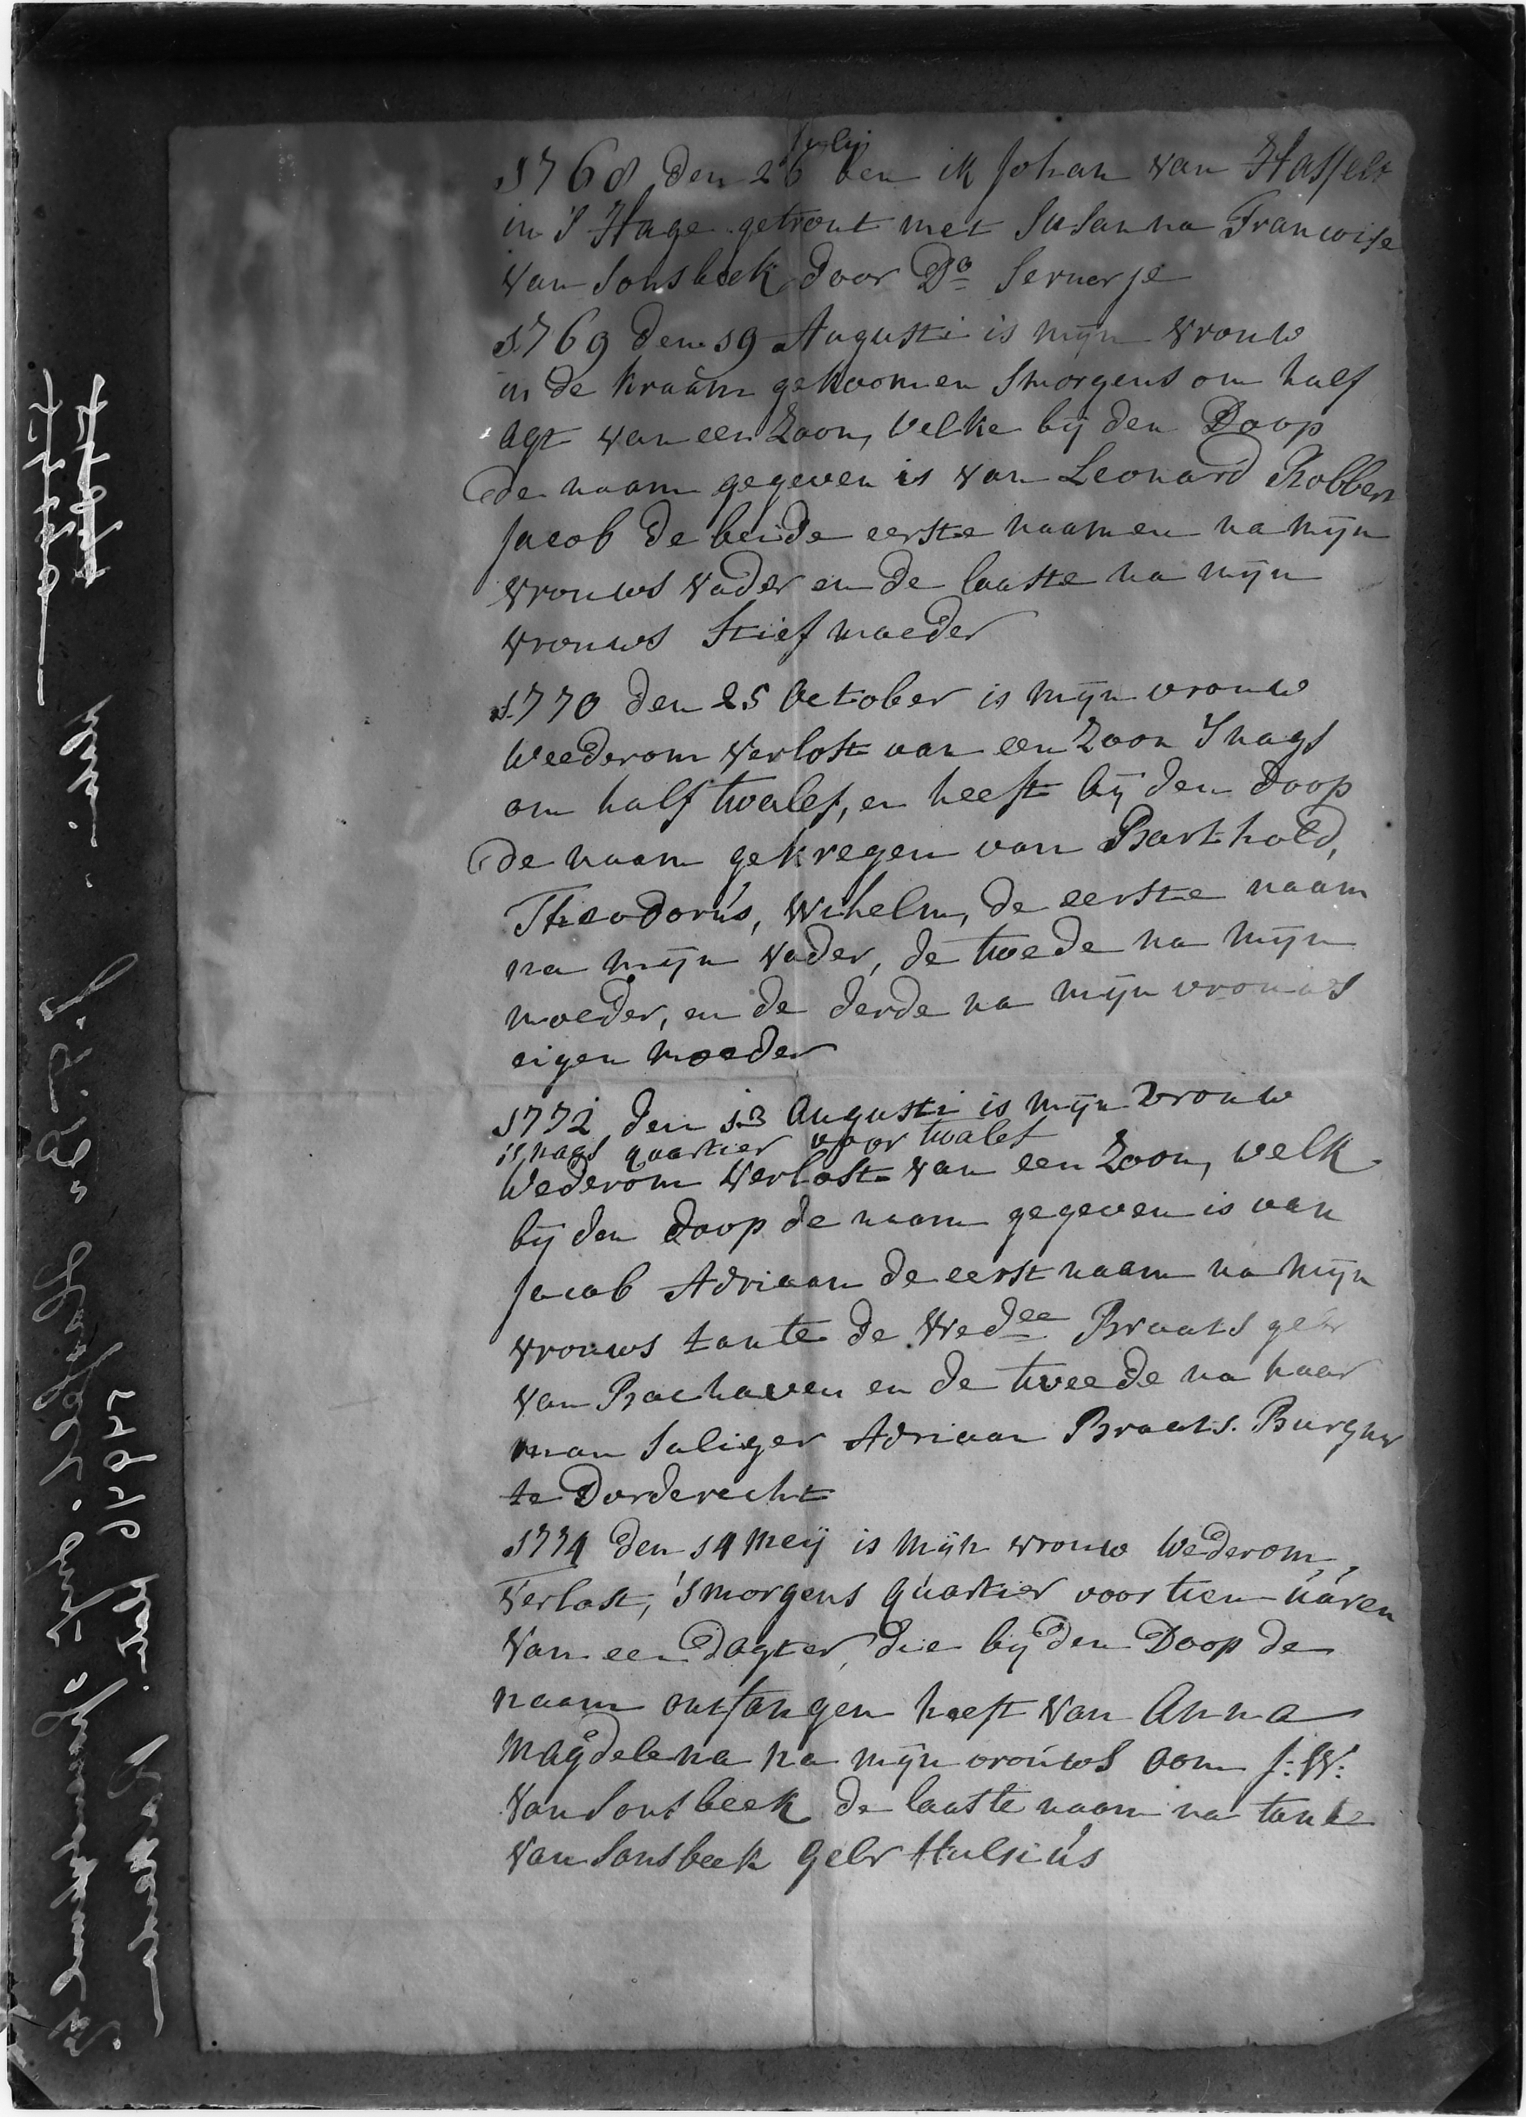 July
1768 den 26 ben ik Johan van Hasselt
in 'S Hage getrout met Susanna Francoise
van Sonsbeek door Do
1769 den 19 Augusti is mijn vrouw
in de kraam gekoomen Smorgens om half
agt van een Zoon, welke bij den Doop
de naam gegeven is van Leonard Robbert
Jacob de beide eerste naamen na mijn
vrouws vader en de laaste na mijn
vrouws Stiefmoeder
1770 den 25 October is mijn vrouw
weederom verlost van een Zoon Snags
om half twalef, en heeft bij den Doop
de naam gekregen van Barthold,
Theodorus, Wihelm, de eerste naam
na mijn vader, de twede na mijn
moeder, en de derde na mijn vrouws
eigen moeder
1772 den 13 Augusti is mijn vrouw
snags quartier voor twalef
wederom verlost van een Zoon, welk
bij den doop de naam gegeven is van
Jacob Adriaan de eerst naam na mijn
vrouws tante de Wed:ee Braats gebr
van Bachaven en de tweede na haar
man Saliger Adriaan Braats. Burger
te Dorderecht
1774 den 14 Meij is mijn vrouw wederom
verlost, 'Smorgens quartier voor tien uuren
van een dogter, die bij den Doop de
naam ontfangen heeft van Anna
Magdelena na mijn vrouws oom J: W:
van Sonsbeek de laaste naam na tante
van Sonsbeek gebr Hulsius